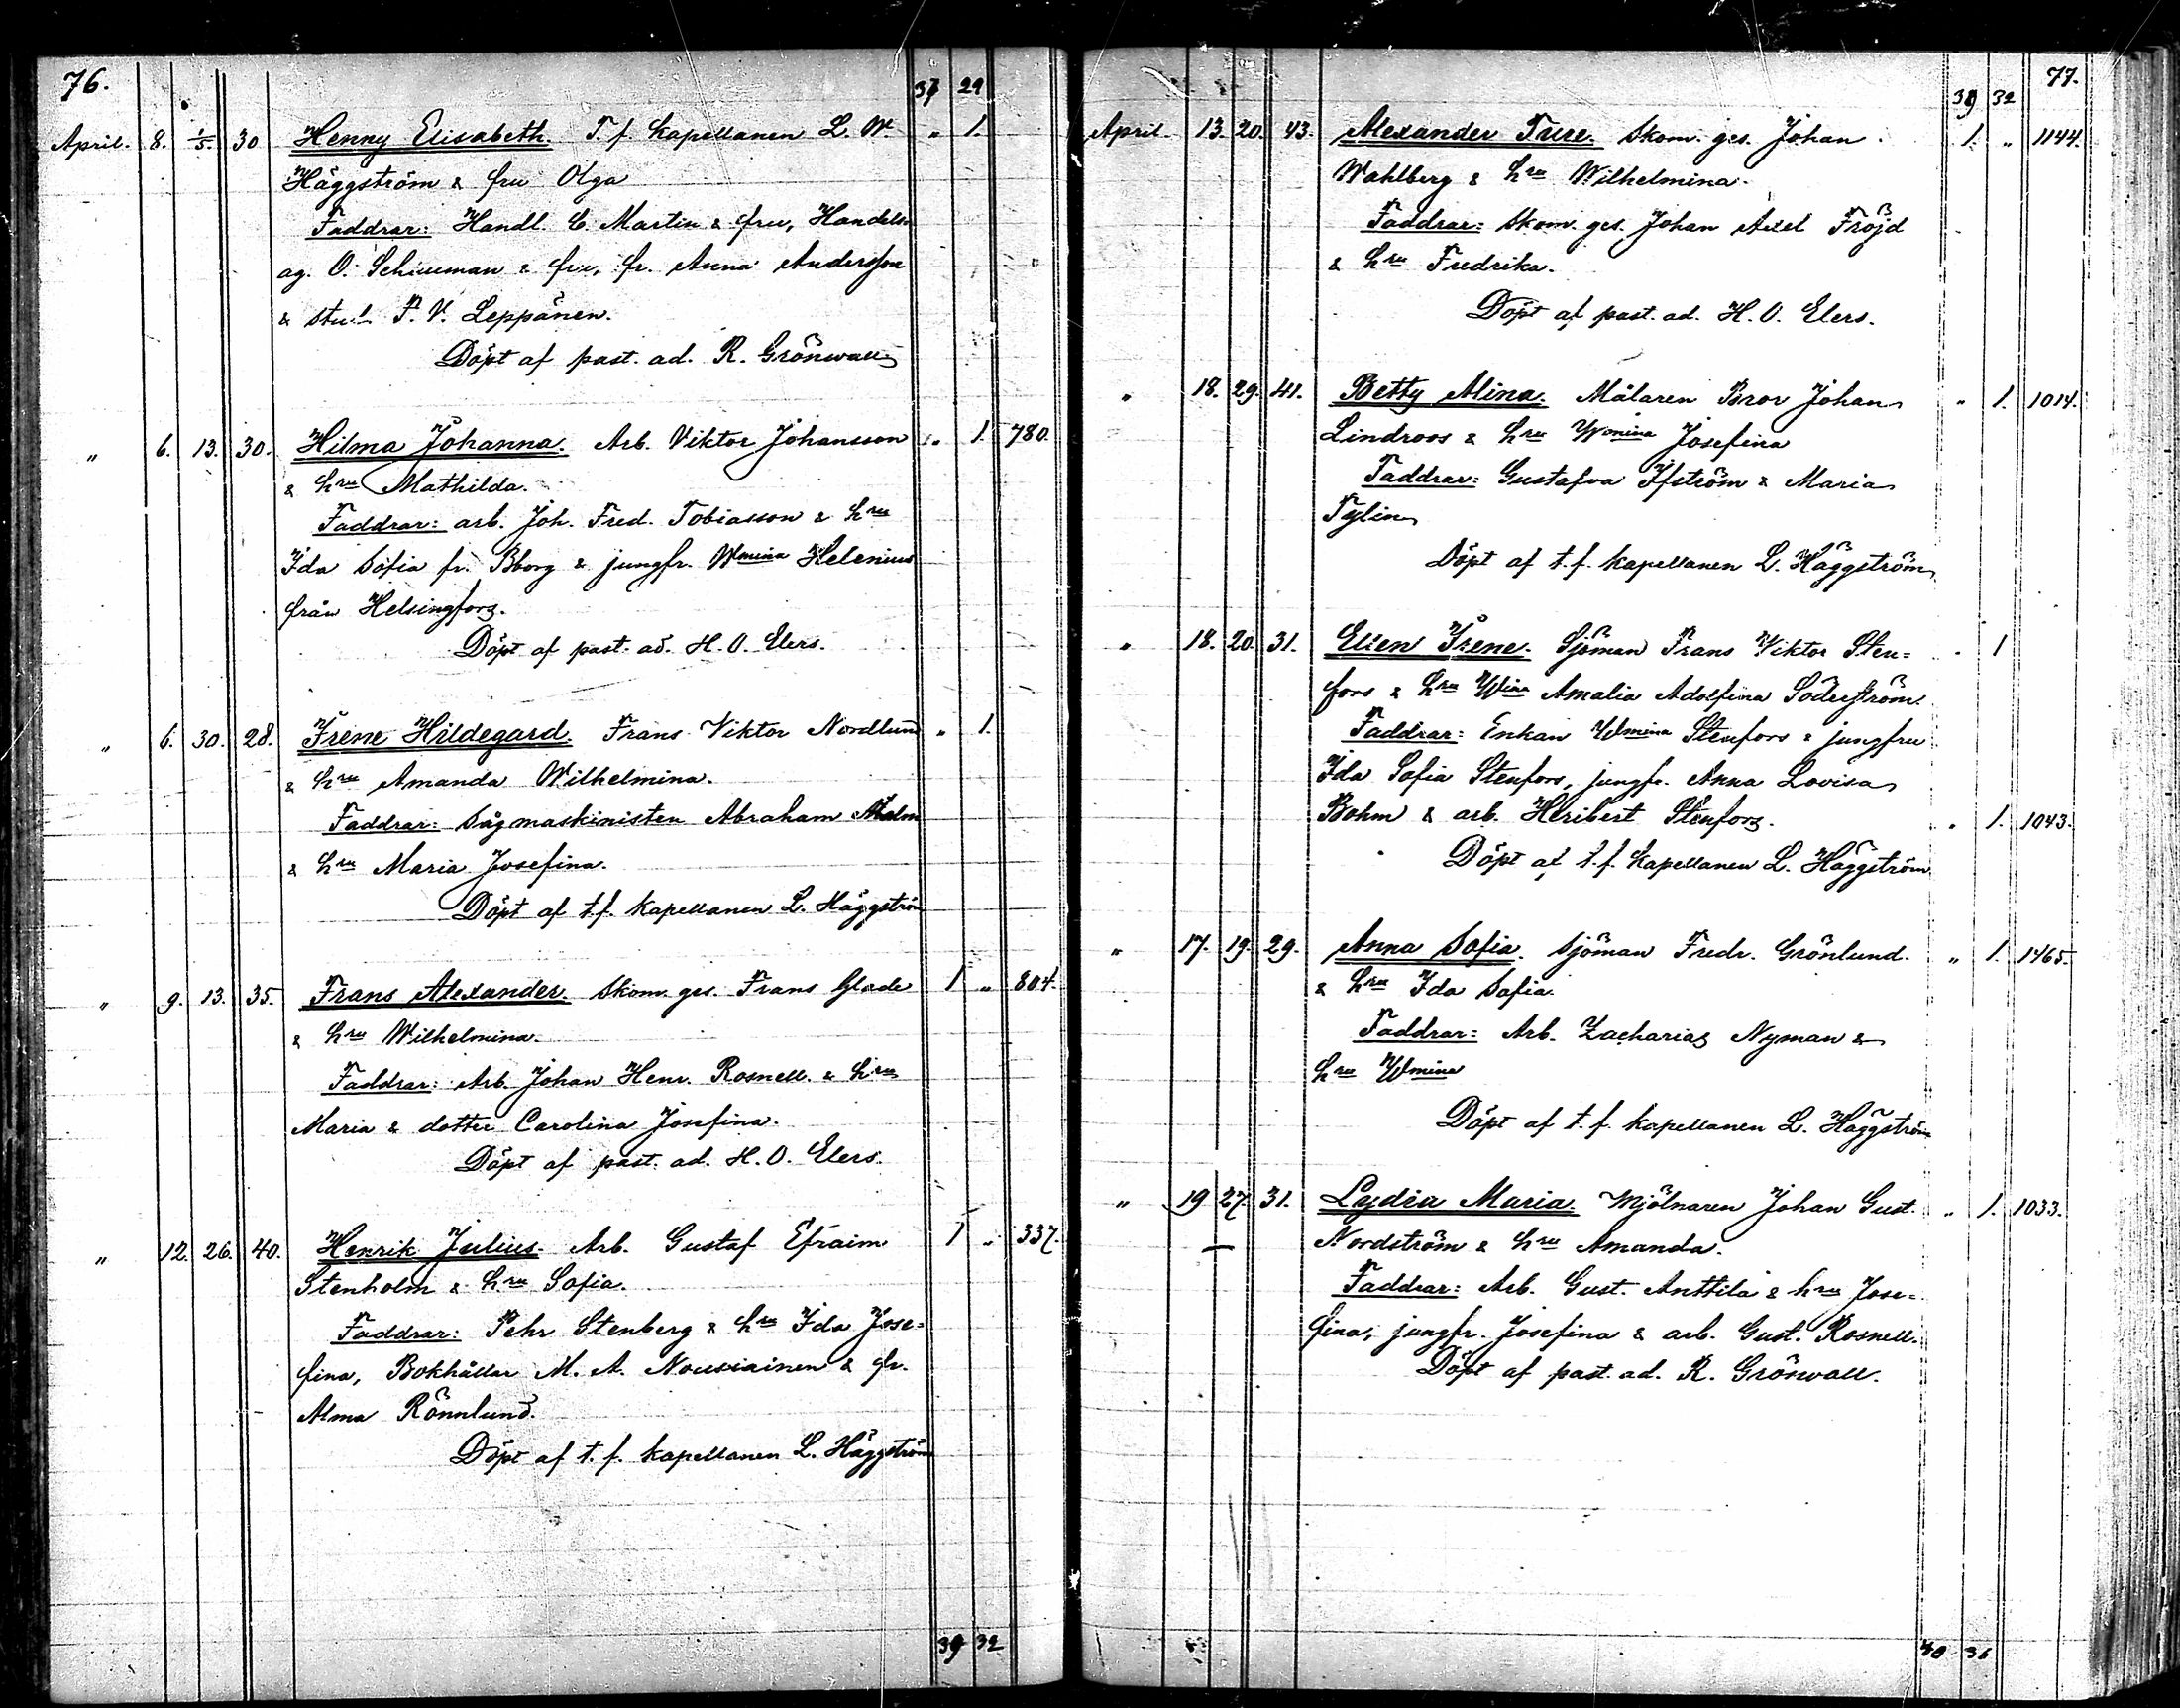 76.
37 29
April. 8. 1/5. 30 Henny Elisabeth. T. f. kapellanen L. W. " 1.
Häggström & fru Olga
Faddrar: Handl. C. Martin & fru, Handels-
ag. O. & fru, fr. Anna Andersson
& stud. F. V. Leppänen.
Döpt af past. ad. R. Grönwall
" 6. 13. 30. Hilma Johanna. Arb. Viktor Johansson " 1. 780.
& hru Mathilda.
Faddrar: arb. Joh. Fred. Tobiasson & hru
Ida Sofia fr. Bborg & jungfr. Wmina Helenius
från Helsingfors.
Döpt af past. ad. H. O. Elers.
" 6. 30. 28. Irene Hildegard. Frans Viktor Nordlund " 1.
& hru Amanda Wilhelmina.
Faddrar: Sågmaskinisten Abraham Malm
& hru Maria Josefina.
Döpt af t.f. kapellanen L. Häggström
" 9. 13. 35. Frans Alexander. Skom. ges. Frans Glade 1 " 804.
& hru Wilhelmina.
Faddrar: Arb. Johan Henr. Rosnell. & hru
Maria & dotter Carolina Josefina.
Döpt af past. ad. H. O. Elers.
" 12. 26. 40. Henrik Julius. Arb. Gustaf Efraim 1 " 337.
Stenholm & hru Sofia.
Faddrar: Pehr Stenberg & hru Ida Jose=
fina, Bokhållar M. A. Nousiainen & fr.
Alma Rönnlund.
Döpt af t. f. kapellanen L. Häggström
39 32
77.
39 32
April. 13. 20. 43. Alexander Ture. Skom. ges. Johan 1. " 1144.
Wahlberg & hru Wilhelmina.
Faddrar: Skom. ges. Johan Axel Fröjd
& hru Fredrika.
Döpt af past. ad. H. O. Elers.
" 18. 29. 41. Betty Alina. Målaren Bror Johan " 1. 1014.
Lindroos & hru Wmina Josefina
Faddrar: Gustafva Ifström & Maria
Tylin
Döpt af t. f. kapellanen L. Häggström
" 18. 20. 31. Ellen Irene. Sjöman Frans Viktor Sten= " 1
fors & hru Wina Amalia Adolfina Söderström.
Faddrar: Enkan Wmina Stenfors & jungfru
Ida Sofia Stenfors, jungfr. Anna Lovisa
Bohm & arb. Heribert Stenfors. " 1. 1043.
Döpt af t. f. kapellanen L. Häggström
" 17. 19. 29. Anna Sofia. Sjöman Fredr. Grönlund. " 1. 1465.
& hru Ida Sofia.
Faddrar: Arb. Zacharias Nyman &
hru Wmina
Döpt af t. f. kapellanen L. Häggström
" 19 27. 31. Lydia Maria. Mjölnaren Johan Gust. " 1. 1033.
Nordström & hru Amanda.
Faddrar: Arb. Gust. Anttila & hru Jose=
fina, jungfr. Josefina & arb. Gust. Rosnell.
Döpt af past. ad. R. Grönwall.
40 36